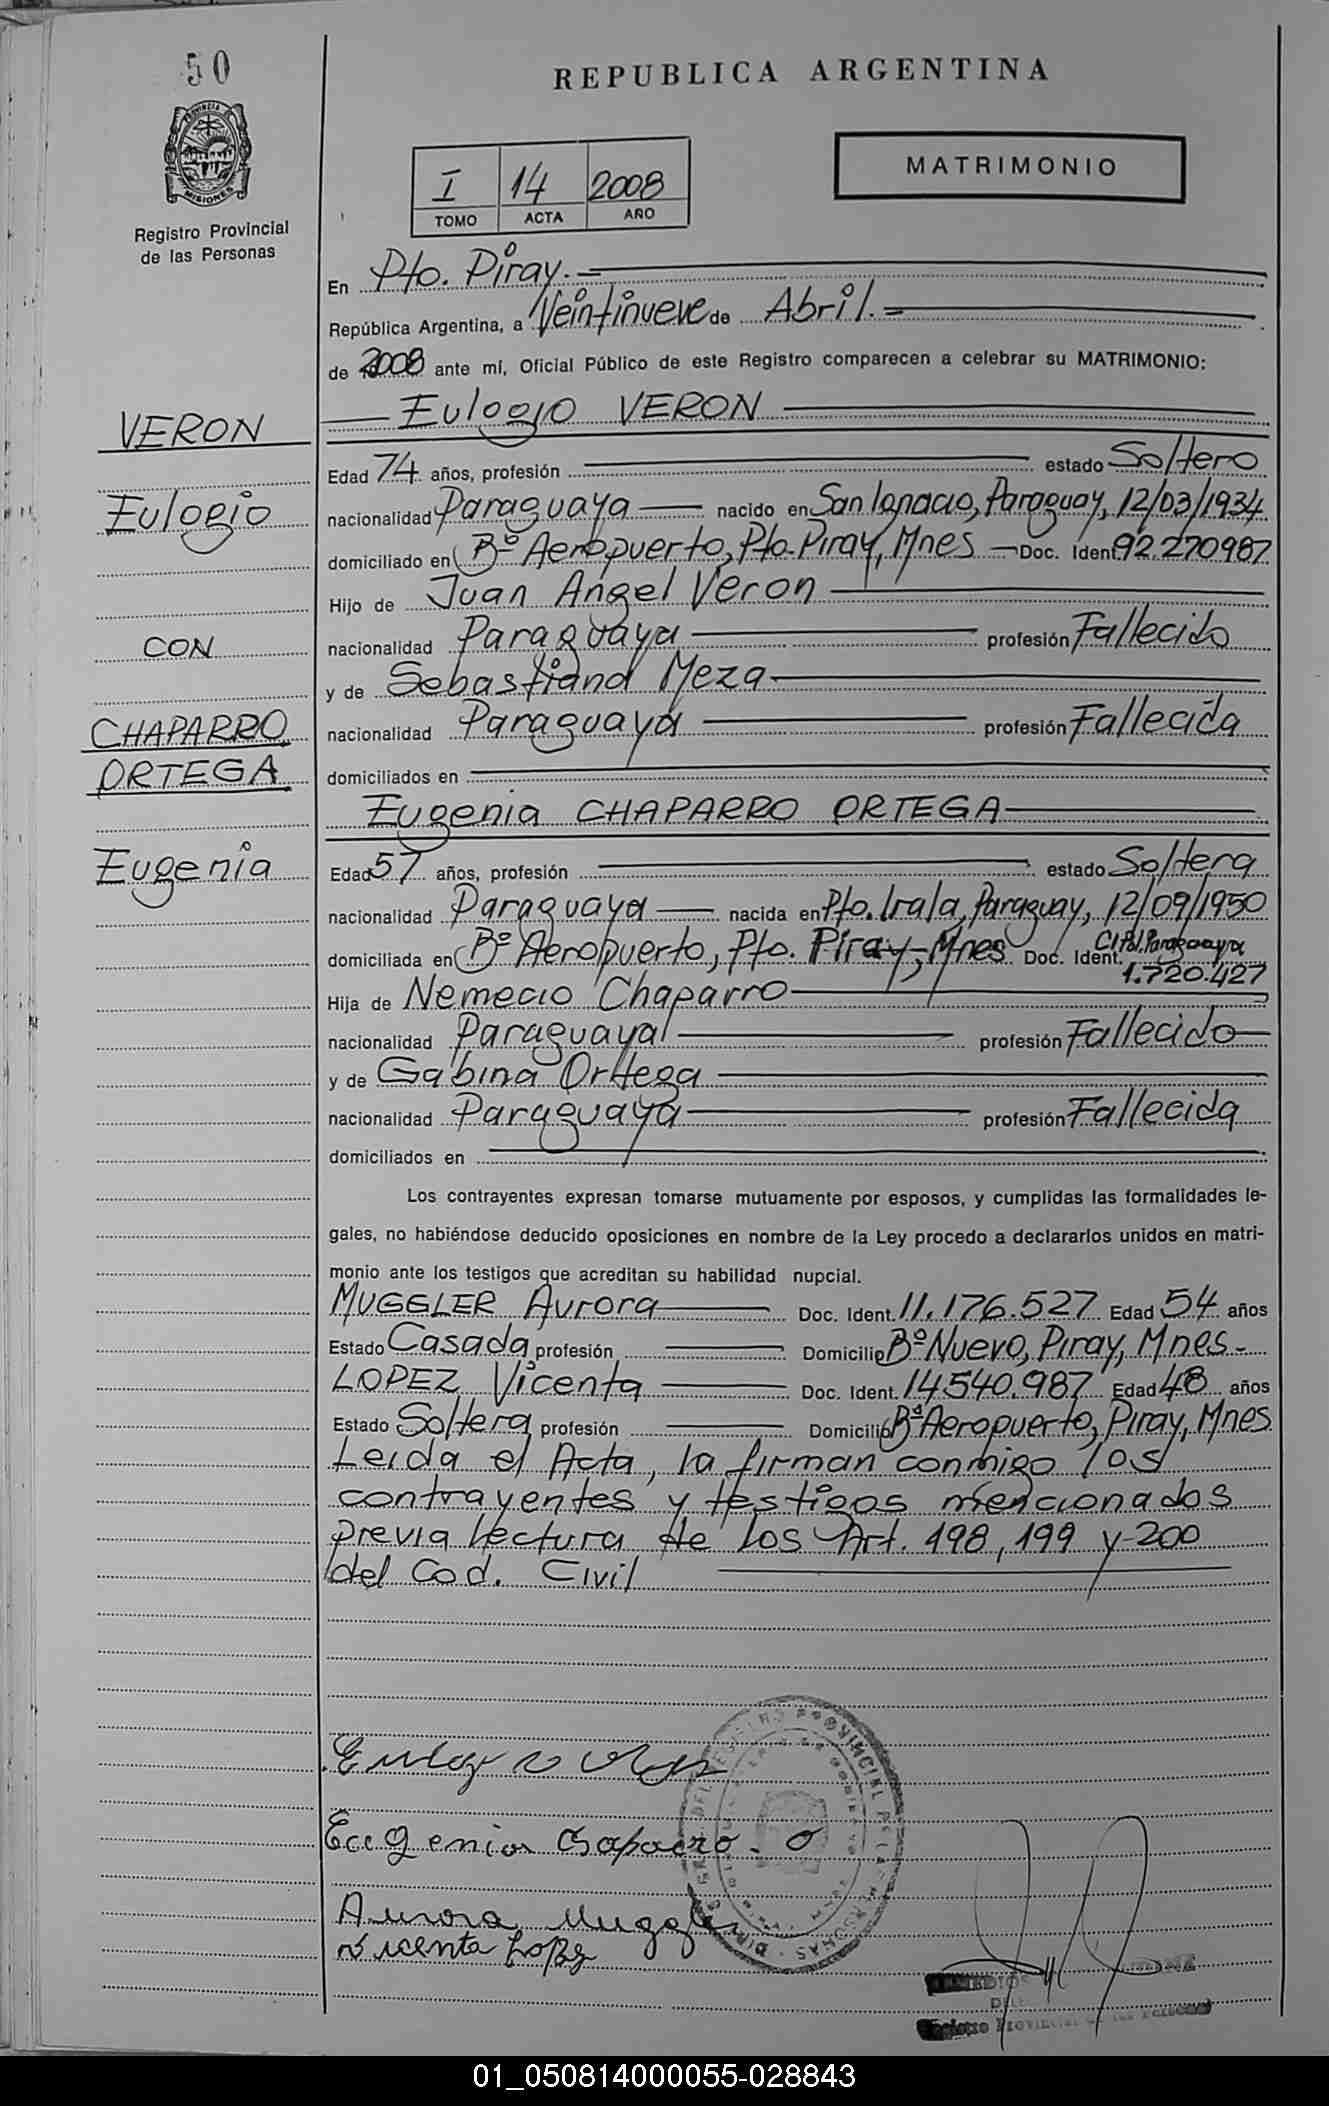 50
PROVINCIA
MISIONES
Registro Provincial
de las Personas
REPUBLICA ARGENTINA
MATRIMONIO
I 14 2008
TOMO ACTA AÑO
En Pto. Piray.=
República Argentina, a Veintinueve de Abril.=
de 2008 ante mí, Oficial Público de este Registro comparecen a celebrar su MATRIMONIO:
Eulogio VERON
VERON
Edad 74 años, profesión estado Soltero
Eulogio
nacionalidad Paraguaya nacido en San Ignacio, Paraguay, 12/03/1934
domiciliado en Bº Aeropuerto, Pto. Piray, Mnes Doc. Ident. 92.270987
Hijo de Juan Angel Veron
CON
nacionalidad Paraguaya profesión Fallecido
y de Sebastiana Meza
CHAPARRO
nacionalidad Paraguaya profesión Fallecida
ORTEGA
domiciliados en
Eugenia CHAPARRO ORTEGA
Eugenia
Edad 57 años, profesión estado Soltera
nacionalidad Paraguaya nacida en Pto. Irala, Paraguay, 12/09/1950
domiciliada en Bº Aeropuerto, Pto. Piray, Mnes Doc. Ident. CI Pol. Paraguaya
1.720.427
Hija de Nemecio Chaparro
nacionalidad Paraguaya profesión Fallecido
y de Gabina Ortega
nacionalidad Paraguaya profesión Fallecida
domiciliados en
Los contrayentes expresan tomarse mutuamente por esposos, y cumplidas las formalidades le-
gales, no habiéndose deducido oposiciones en nombre de la Ley procedo a declararlos unidos en matri-
monio ante los testigos que acreditan su habilidad nupcial.
MUGGLER Aurora Doc. Ident. 11.176.527 Edad 54 años
Estado Casada profesión Domicilio Bº Nuevo, Piray, Mnes.
LOPEZ Vicenta Doc. Ident. 14540.987 Edad 48 años
Estado Soltera profesión Domicilio Bº Aeropuerto, Piray, Mnes
Leida el Acta, la firman conmigo los
contrayentes y testigos mencionados
previa lectura de los Art. 198, 199 y 200
del Cod. Civil
Eulogio
Eugenia Chaparro. O
Aurora Muggler
Vicenta Lopez
Registro Provincial de las Personas
01_050814000055-028843